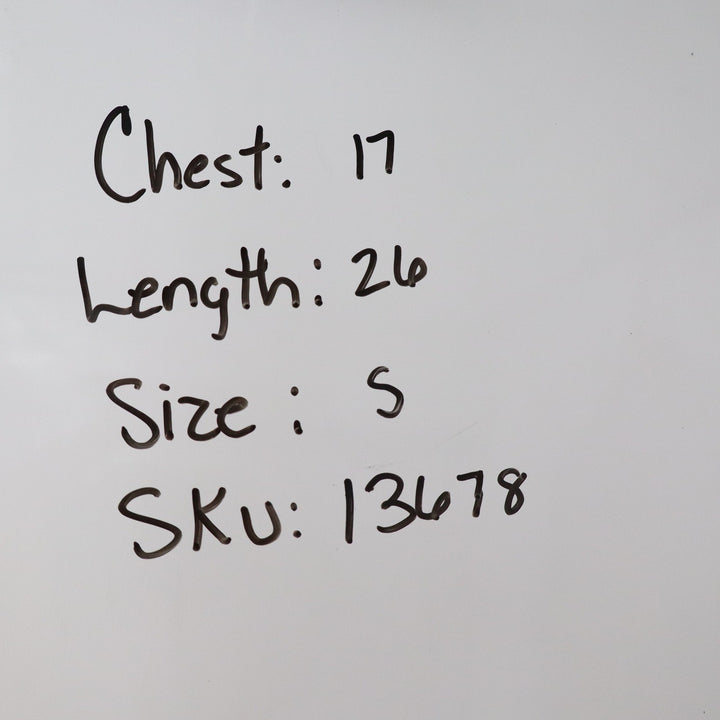 Chest: 17
Length: 26
Size: S
SKU: 13678